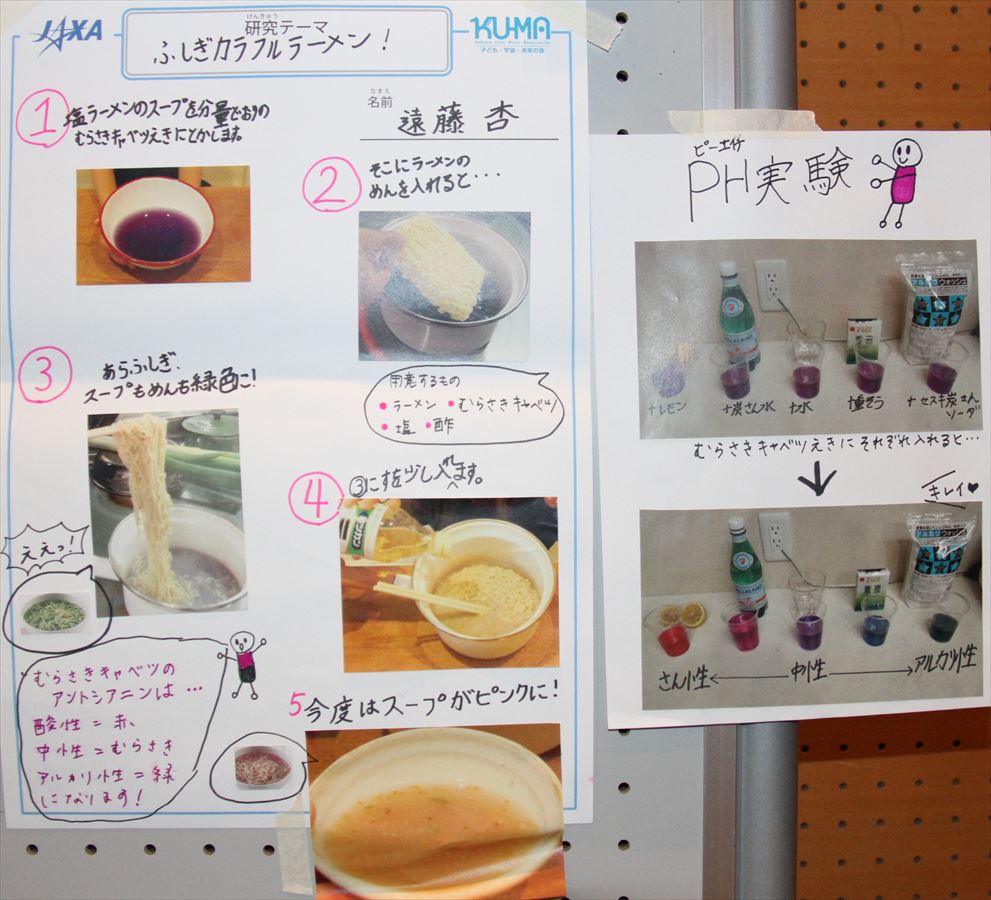 JAXA
けんきゅう
研究テーマ
ふしぎカラフルラーメン！
KU-MA
子ども・宇宙・未来の会
なまえ
名前
遠藤 杏
① 塩ラーメンのスープを分量どおりの
むらさきキャベツえきにとかします。
② そこにラーメンの
めんを入れると・・・
③ あらふしぎ、
スープもめんも緑色に！
用意するもの
・ラーメン ・むらさきキャベツ
・塩 ・酢
④ ③にすを少し入れます。
ええっ！
むらさきキャベツの
アントシアニンは…
酸性＝赤、
中性＝むらさき
アルカリ性＝緑
になります！
5 今度はスープがピンクに！
PH実験
+レモン
+炭さん水
+水
+重そう
+セスキ炭さん
ソーダ
むらさきキャベツえきにそれぞれ入れると…
↓
キレイ♥
重曹
さん性←中性→アルカリ性